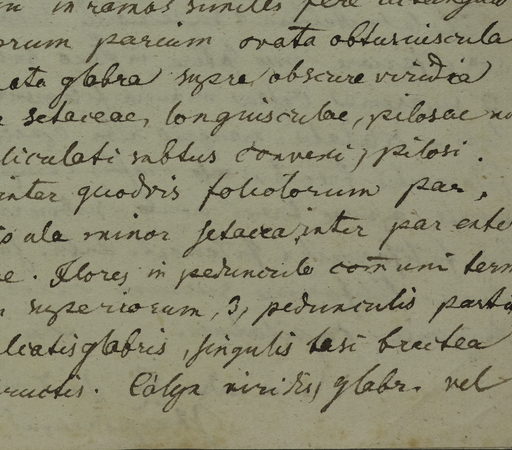 in ramos similes fere
orum parium ovata obtusiuscula
nata glabra supra obscure viridia
setaceae, longiusculae, pilosae
liculati subtus convexi, pilosi.
inter quodvis foliolorum par,
ula minor setacea, inter par
e. Flores in pedunculo com̄uni term
superiorum, 3, pedunculis partia
licatis glabris, singulis basi bractea
ructis. Calyx viridis, glabr. vel